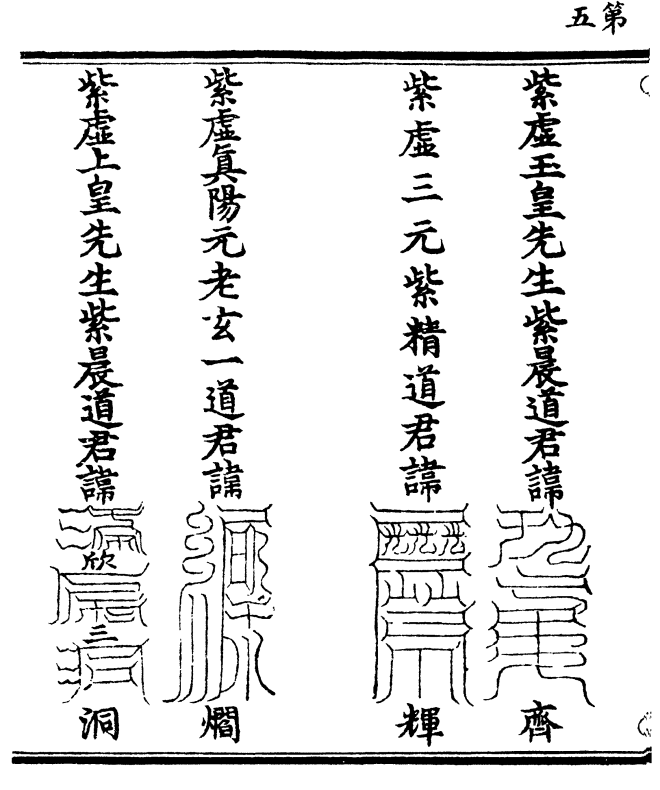 第五
紫虛玉皇先生紫晨道君諱
齊
紫虛三元紫精道君諱
輝
紫虛真陽元老玄一道君諱
爓
紫虛上皇先生紫晨道君諱
欣
三
洞